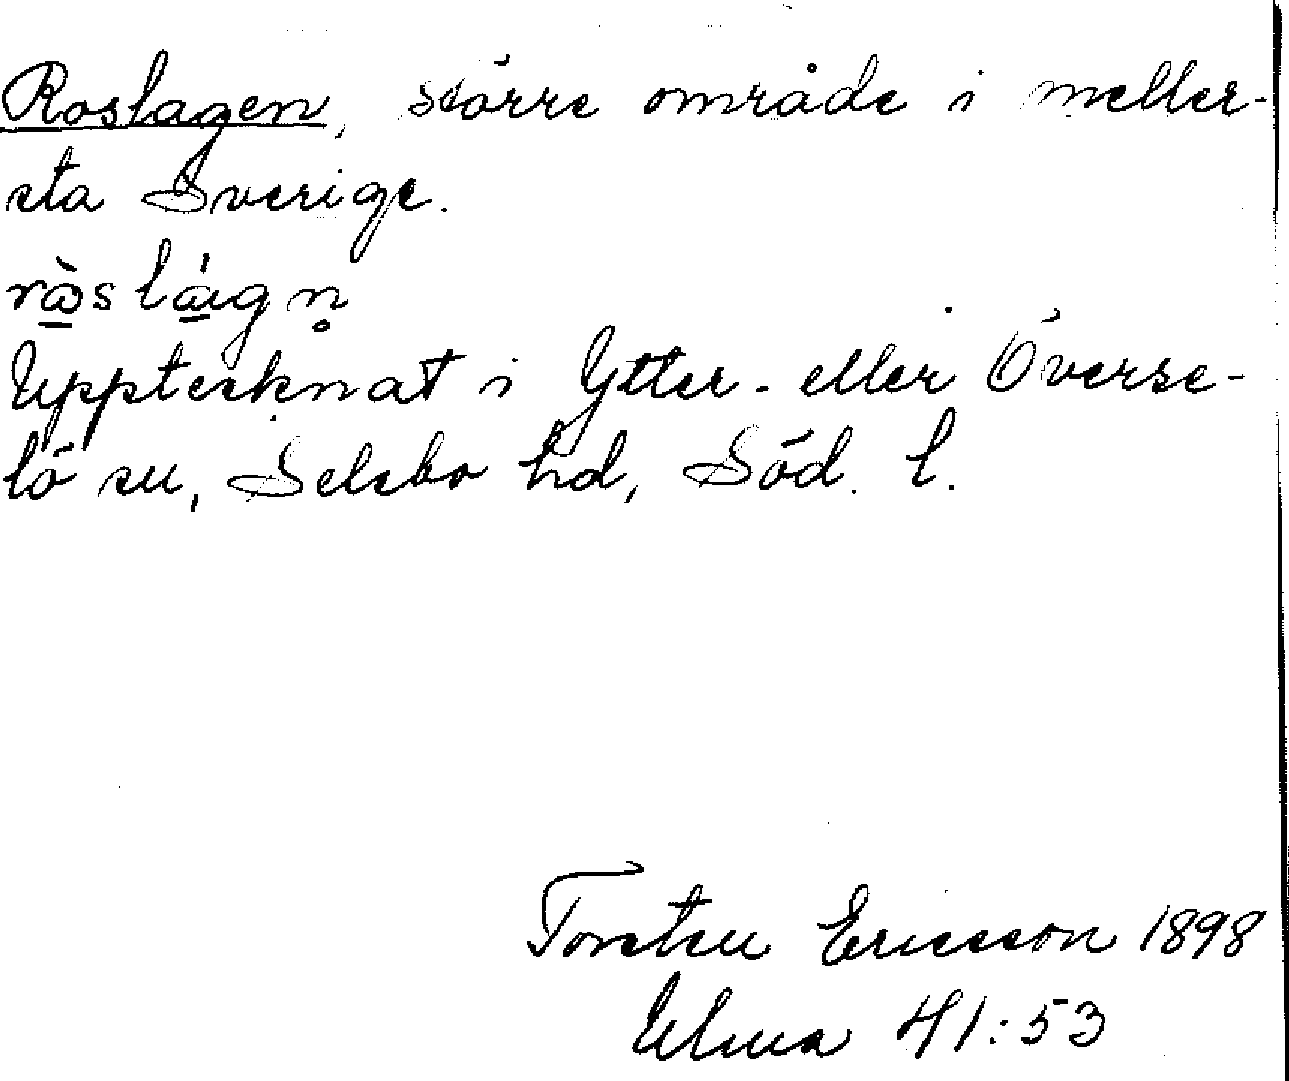 Roslagen, större område i meller-
sta Sverige.
Upptecknat i Ytter- eller Överse-
lö sn, Selebo hd, Söd. l.
Torsten Ericsson 1898
Ulma 41:53